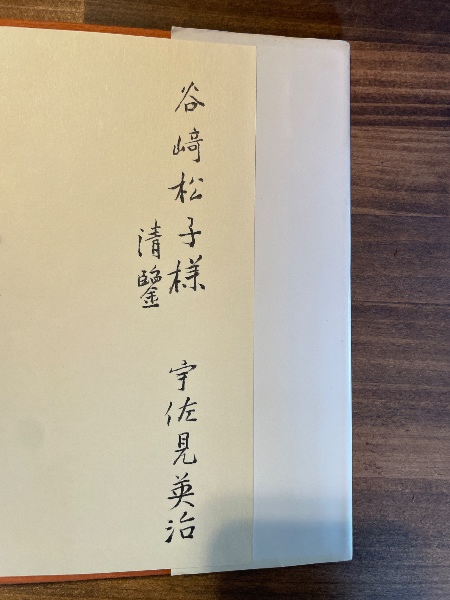 谷﨑松子様
清鑒
宇佐見英治